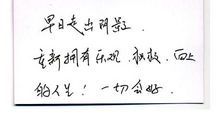 早日走出阴影
重新拥有乐观、积极、向上
的人生！一切会好.